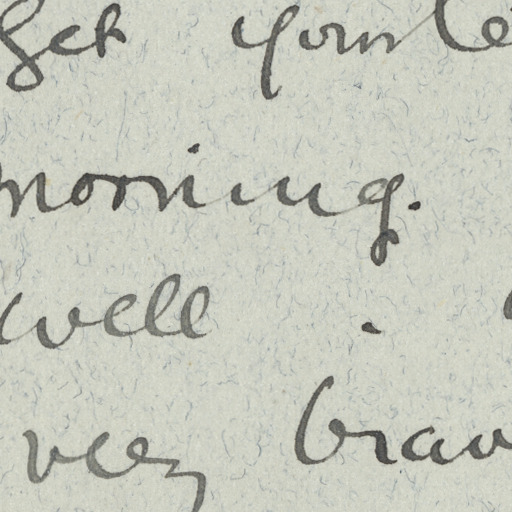 get your le
morning.
well .
very brav